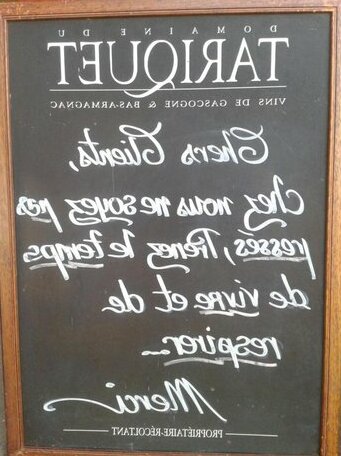 DOMAINE DU
TARIQUET
VINS DE GASCOGNE & BAS-ARMAGNAC
Chers Clients,
Chez nous ne soyez pas
pressés, Prenez le temps
de vivre et de
respirer...
Merci
PROPRIÉTAIRE-RÉCOLTANT